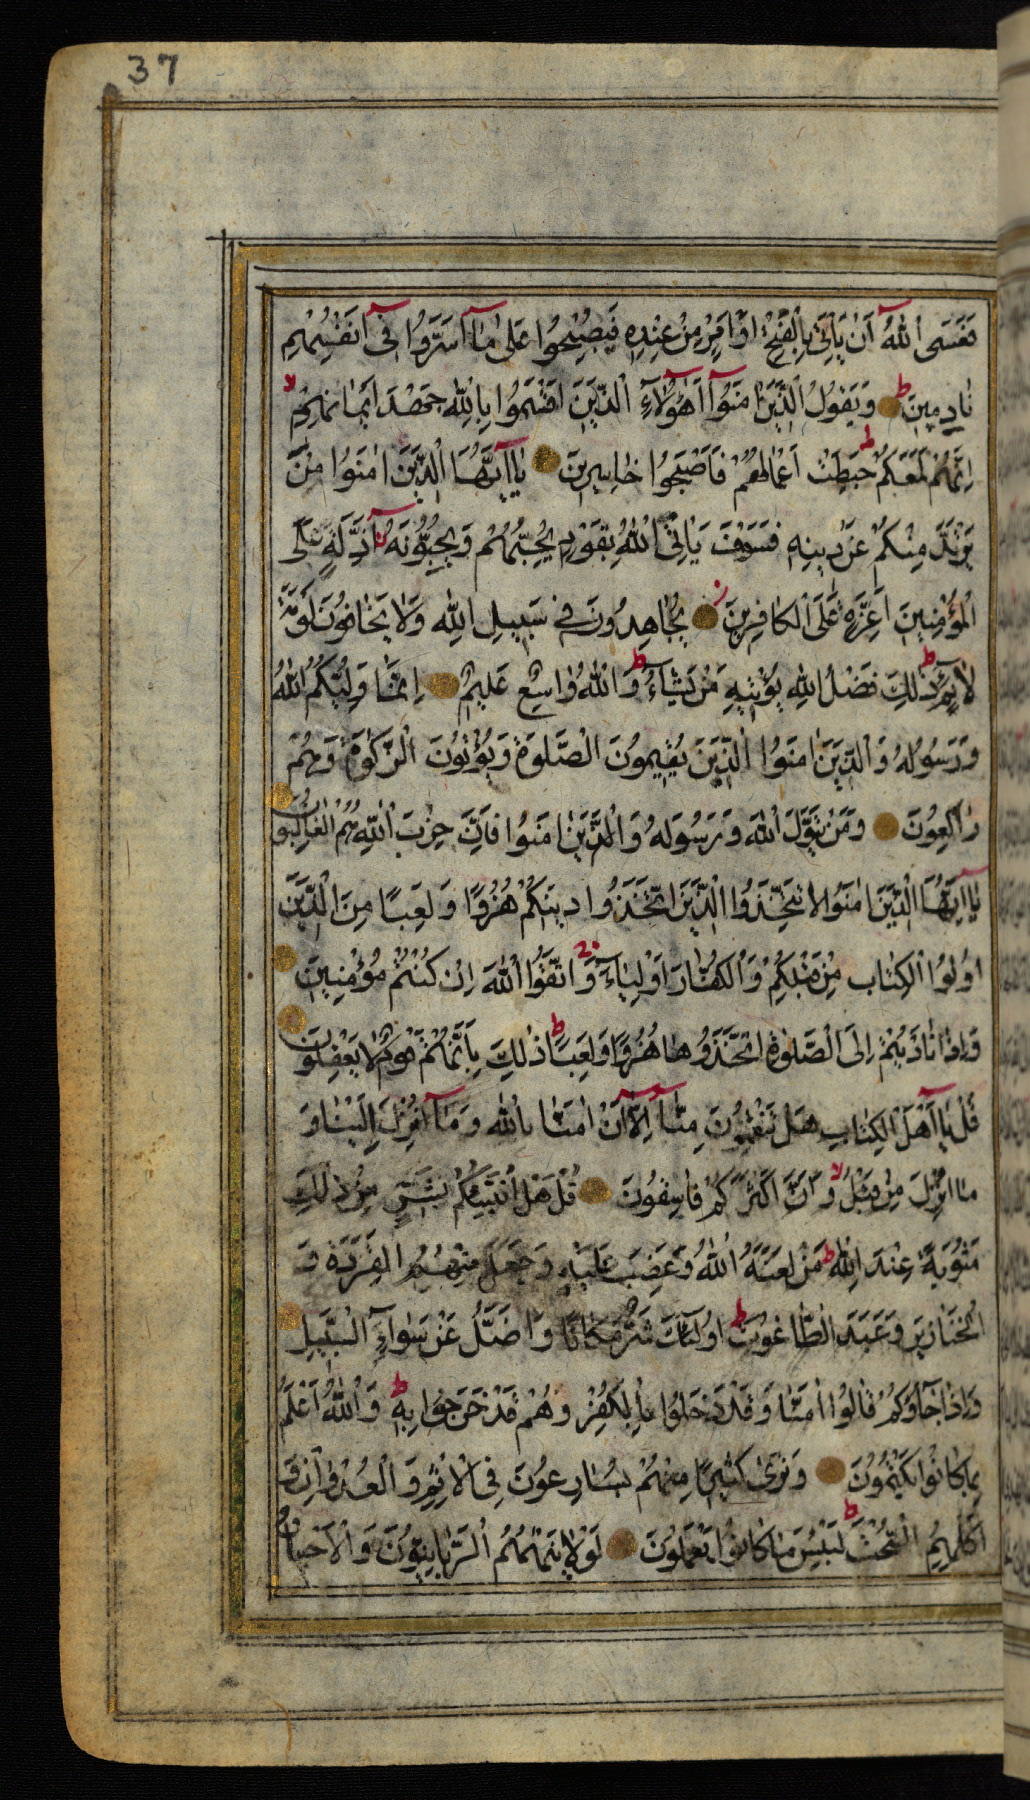 37
فَعَسَى اللّٰهُ اَنْ يَأْتِيَ بِالْفَتْحِ اَوْ اَمْرٍ مِنْ عِنْدِهِ فَيُصْبِحُوا عَلٰى مٰا اَسَرُّوا فِى اَنْفُسِهِمْ
نٰادِمِينَ وَيَقُولُ الَّذِينَ اٰمَنُوا اَهٰؤُلٰاءِ الَّذِينَ اَقْسَمُوا بِاللّٰهِ جَهْدَ اَيْمٰانِهِمْ
اِنَّهُمْ لَمَعَكُمْ حَبِطَتْ اَعْمٰالُهُمْ فَاَصْبَحُوا خٰاسِرِينَ يٰا اَيُّهَا الَّذِينَ اٰمَنُوا مَنْ
يَرْتَدَّ مِنْكُمْ عَنْ دِينِهِ فَسَوْفَ يَأْتِى اللّٰهُ بِقَوْمٍ يُحِبُّهُمْ وَيُحِبُّونَهُ اَذِلَّةٍ عَلَى
الْمُؤْمِنِينَ اَعِزَّةٍ عَلَى الْكٰافِرِينَ يُجٰاهِدُونَ فِى سَبِيلِ اللّٰهِ وَلٰا يَخٰافُونَ لَوْمَةَ
لٰائِمٍ ذٰلِكَ فَضْلُ اللّٰهِ يُؤْتِيهِ مَنْ يَشٰاءُ وَاللّٰهُ وٰاسِعٌ عَلِيمٌ اِنَّمٰا وَلِيُّكُمُ اللّٰهُ
وَرَسُولُهُ وَالَّذِينَ اٰمَنُوا الَّذِينَ يُقِيمُونَ الصَّلٰوةَ وَيُؤْتُونَ الزَّكٰوةَ وَهُمْ
رٰاكِعُونَ وَمَنْ يَتَوَلَّ اللّٰهَ وَرَسُولَهُ وَالَّذِينَ اٰمَنُوا فَاِنَّ حِزْبَ اللّٰهِ هُمُ الْغٰالِبُونَ
يٰا اَيُّهَا الَّذِينَ اٰمَنُوا لٰا تَتَّخِذُوا الَّذِينَ اتَّخَذُوا دِينَكُمْ هُزُوًا وَلَعِبًا مِنَ الَّذِينَ
اُوتُوا الْكِتٰابَ مِنْ قَبْلِكُمْ وَالْكُفّٰارَ اَوْلِيٰاءَ وَاتَّقُوا اللّٰهَ اِنْ كُنْتُمْ مُؤْمِنِينَ
وَاِذٰا نٰادَيْتُمْ اِلَى الصَّلٰوةِ اتَّخَذُوهٰا هُزُوًا وَلَعِبًا ذٰلِكَ بِاَنَّهُمْ قَوْمٌ لٰا يَعْقِلُونَ
قُلْ يٰا اَهْلَ الْكِتٰابِ هَلْ تَنْقِمُونَ مِنّٰا اِلّٰا اَنْ اٰمَنّٰا بِاللّٰهِ وَمٰا اُنْزِلَ اِلَيْنٰا وَ
مٰا اُنْزِلَ مِنْ قَبْلُ وَاَنَّ اَكْثَرَكُمْ فٰاسِقُونَ قُلْ هَلْ اُنَبِّئُكُمْ بِشَرٍّ مِنْ ذٰلِكَ
مَثُوبَةً عِنْدَ اللّٰهِ مَنْ لَعَنَهُ اللّٰهُ وَغَضِبَ عَلَيْهِ وَجَعَلَ مِنْهُمُ الْقِرَدَةَ وَ
الْخَنٰازِيرَ وَعَبَدَ الطّٰاغُوتَ اُولٰئِكَ شَرٌّ مَكٰانًا وَاَضَلُّ عَنْ سَوٰاءِ السَّبِيلِ
وَاِذٰا جٰاؤُكُمْ قٰالُوا اٰمَنّٰا وَقَدْ دَخَلُوا بِالْكُفْرِ وَهُمْ قَدْ خَرَجُوا بِهِ وَاللّٰهُ اَعْلَمُ
بِمٰا كٰانُوا يَكْتُمُونَ وَتَرٰى كَثِيرًا مِنْهُمْ يُسٰارِعُونَ فِى الْاِثْمِ وَالْعُدْوٰانِ وَ
اَكْلِهِمُ السُّحْتَ لَبِئْسَ مٰا كٰانُوا يَعْمَلُونَ لَوْلٰا يَنْهٰهُمُ الرَّبّٰانِيُّونَ وَالْاَحْبٰارُ